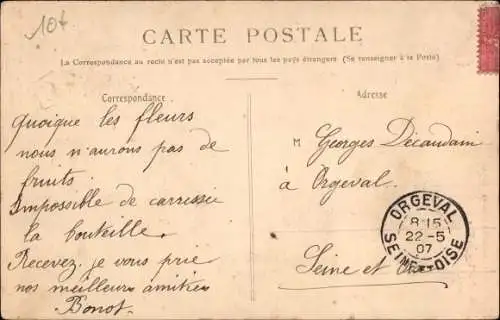 10f
CARTE POSTALE
La Correspondance au recto n'est pas acceptée par tous les pays étrangers (Se renseigner à la Poste)
Correspondance
Quoique les fleurs
nous n'aurons pas de
fruits.
Impossible de carressie
la bouteille.
Recevez je vous prie
nos meilleurs amitiés
Bonot.
Adresse
M Georges Décaudain
à Orgeval.
Seine et Oise
ORGEVAL
8 15
22-5
07
SEINE-ET-OISE